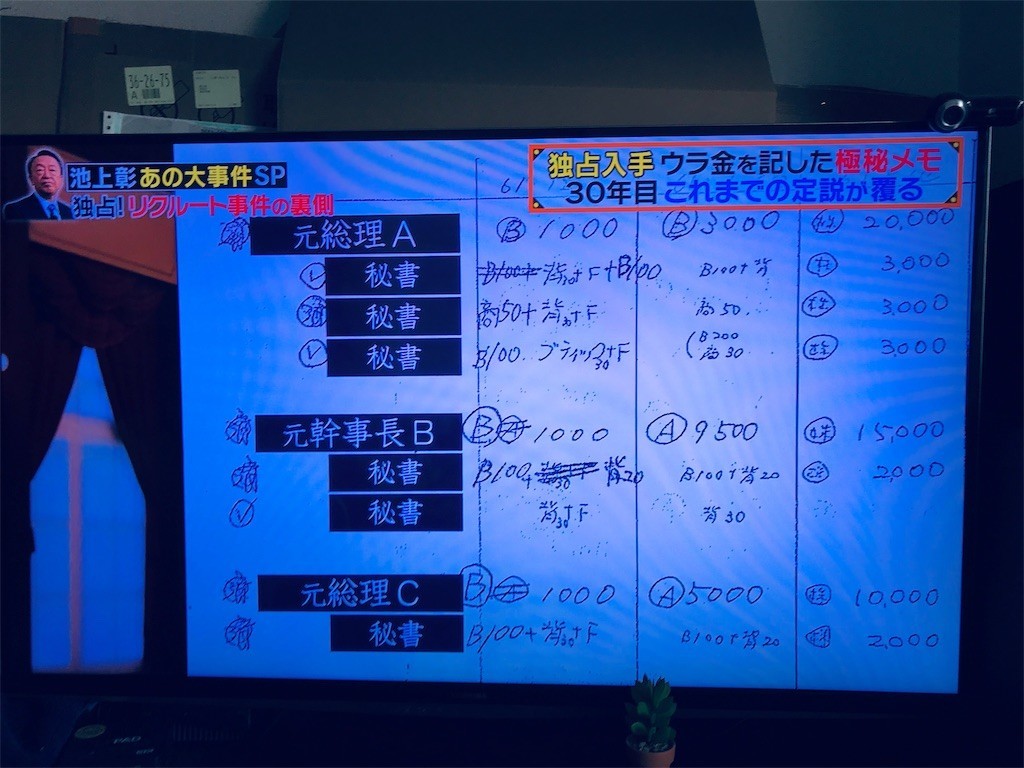 36-26-75
A
池上彰 あの大事件SP
独占!リクルート事件の裏側
独占入手 ウラ金を記した極秘メモ
30年目 これまでの定説が覆る
61
元総理A Ⓑ 1000 Ⓑ 3000 ㊑ 20,000
秘書 B100+背30+F+B100 B100+背 ㊑ 3,000
秘書 商50+背30+F 商50. ㊑ 3,000
秘書 B100. ブティック30+F (B200 商30 ㊑ 3,000
元幹事長B Ⓑ Ⓐ 1000 Ⓐ 9500 ㊑ 15,000
秘書 B100+背30 背20 B100+背20 2,000
秘書 背30+F 背30
元総理C Ⓑ Ⓐ 1000 Ⓐ 5000 ㊑ 10,000
秘書 B100+背30+F B100+背20 2,000